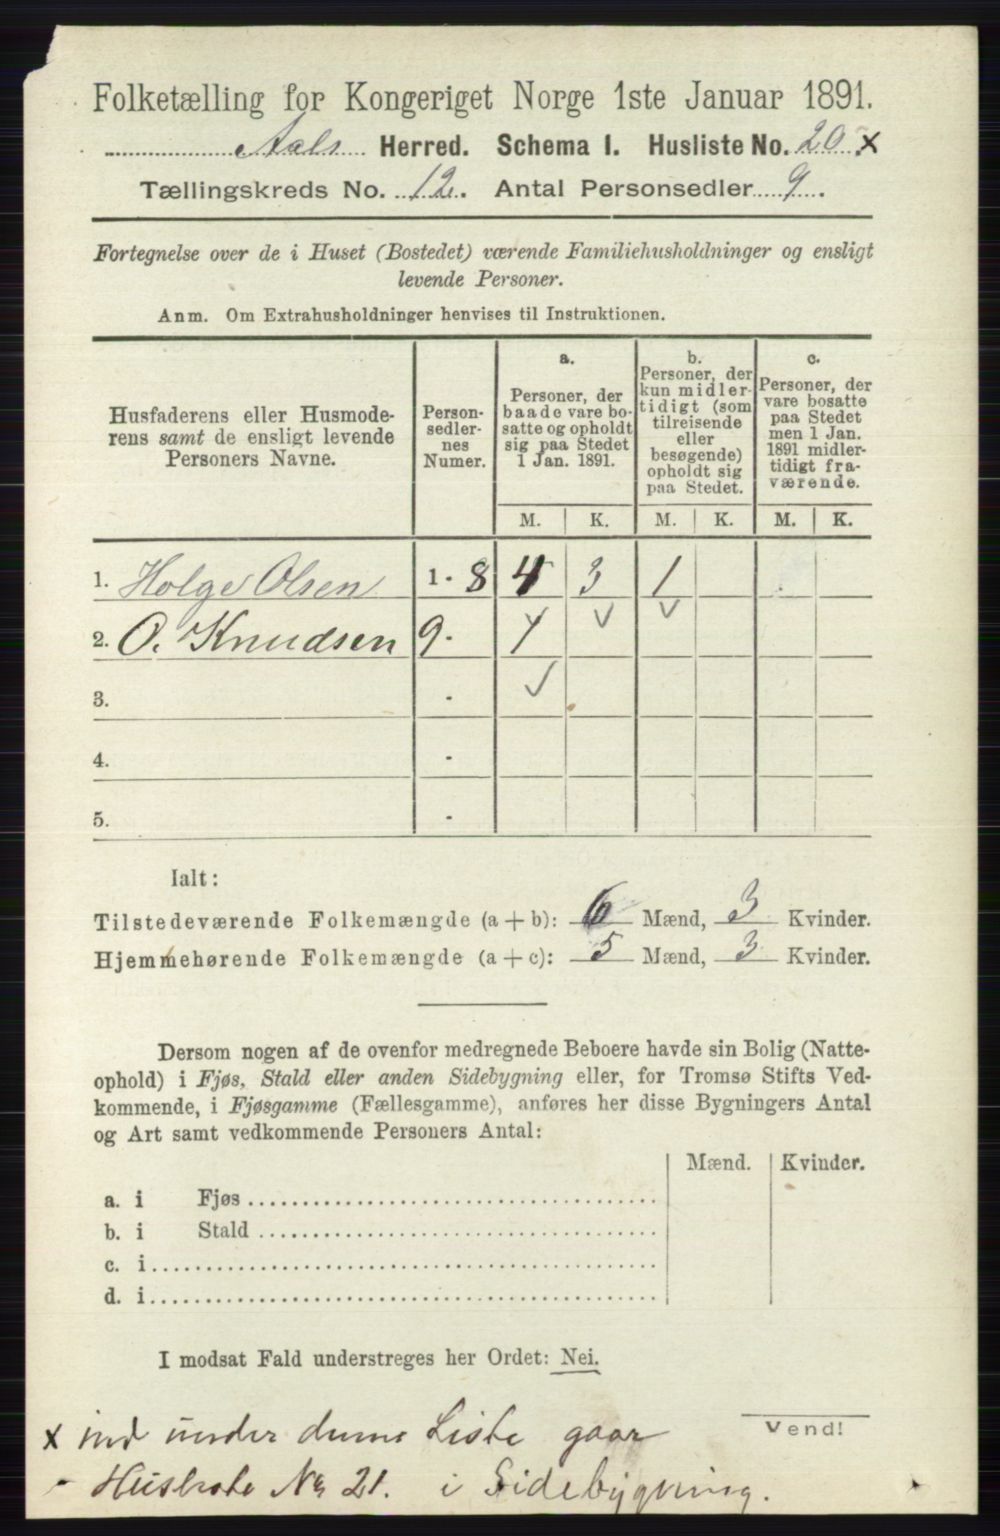 Folketælling for Kongeriget Norge 1ste Januar 1891.
Aals Herred. Schema I. Husliste No. 20. x
Tællingskreds No. 12. Antal Personsedler 9.
Fortegnelse over de i Huset (Bostedet) værende Familiehusholdninger og ensligt
levende Personer.
Anm. Om Extrahusholdninger henvises til Instruktionen.
Husfaderens eller Husmode-
rens samt de ensligt levende
Personers Navne.
Person-
sedler-
nes
Numer.
a.
Personer, der
baade vare bo-
satte og opholdt
sig paa Stedet
1 Jan. 1891.
b.
Personer, der
kun midler-
tidigt (som
tilreisende
eller
besøgende)
opholdt sig
paa Stedet.
c.
Personer, der
vare bosatte
paa Stedet
men 1 Jan.
1891 midler-
tidigt fra-
værende.
M. K. M. K. M. K.
1. Holge Olsen 1 - 8 4 3 1
2. O. Knudsen 9 - 1
3. -
4. -
5. -
Ialt:
Tilstedeværende Folkemængde (a + b): 6 Mænd, 3 Kvinder.
Hjemmehørende Folkemængde (a + c): 5 Mænd, 3 Kvinder.
Dersom nogen af de ovenfor medregnede Beboere havde sin Bolig (Natte-
ophold) i Fjøs, Stald eller anden Sidebygning eller, for Tromsø Stifts Ved-
kommende, i Fjøsgamme (Fællesgamme), anføres her disse Bygningers Antal
og Art samt vedkommende Personers Antal:
Mænd. Kvinder.
a. i Fjøs
b. i Stald
c. i
d. i
I modsat Fald understreges her Ordet: Nei.
Vend!
x ind under denne Liste gaar
Husliste No 21. i Sidebygning.